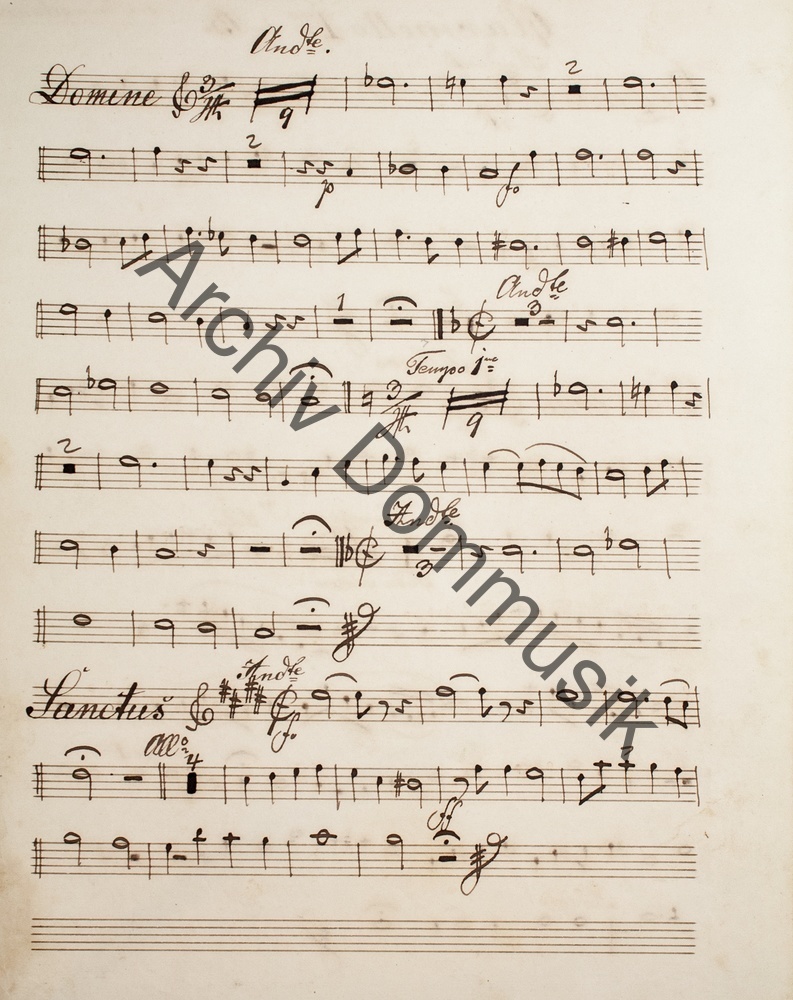 Andte.
Domine 3/4 9 2
2
p fo
Andte
1 3
Tempo 1mo
3/4 9
2
Andte
3
Andte
Sanctus fo
Allo
4
ff
Archiv Dommusik